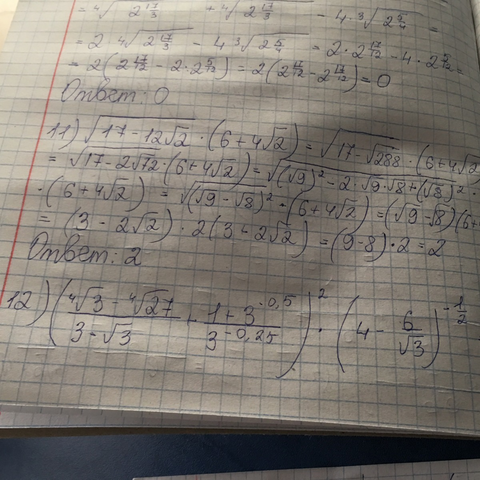 = ⁴√(2^(17/3)) + ⁴√(2^(17/3)) - 4·³√(2^(5/4)) =
= 2 ⁴√(2^(17/3)) - 4 ³√(2^(5/4)) = 2·2^(17/12) - 4·2^(5/12) =
= 2(2^(17/12) - 2·2^(5/12)) = 2(2^(17/12) - 2^(17/12)) = 0
Ответ: 0
11) √(17-12√2) · (6+4√2) = √(17-√288) · (6+4√2)
= √(17-2√72) · (6+4√2) = √((√9)² - 2·√9·√8 + (√8)²) ·
· (6+4√2) = √((√9-√8)²) · (6+4√2) = (√9-√8)(6+
= (3-2√2) · 2(3+2√2) = (9-8)·2 = 2
Ответ: 2
12) ((⁴√3 - ⁴√27)/(3-√3) + (1+3^(-0,5))/(3^(-0,25)))² · (4 - 6/√3)^(-1/2)